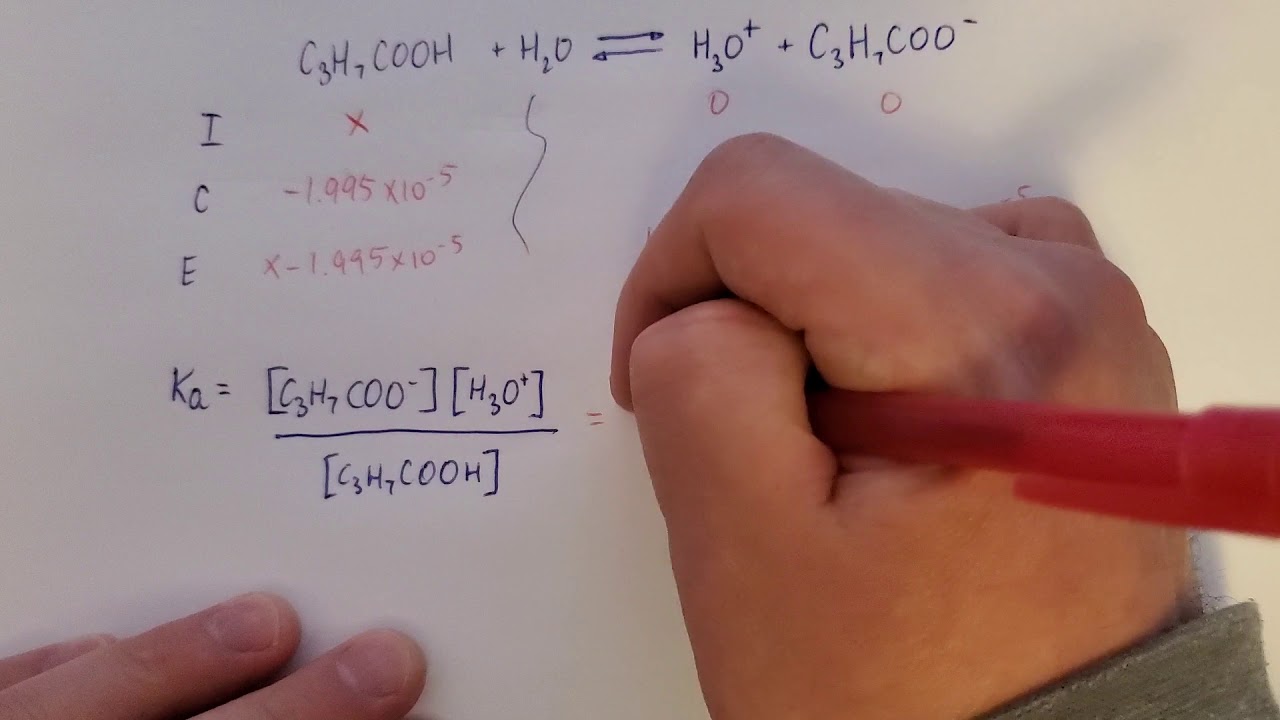 C₃H₇COOH + H₂O ⇌ H₃O⁺ + C₃H₇COO⁻
I x 0 0
C -1.995×10⁻⁵
E x-1.995×10⁻⁵
Ka = [C₃H₇COO⁻][H₃O⁺] =
[C₃H₇COOH]